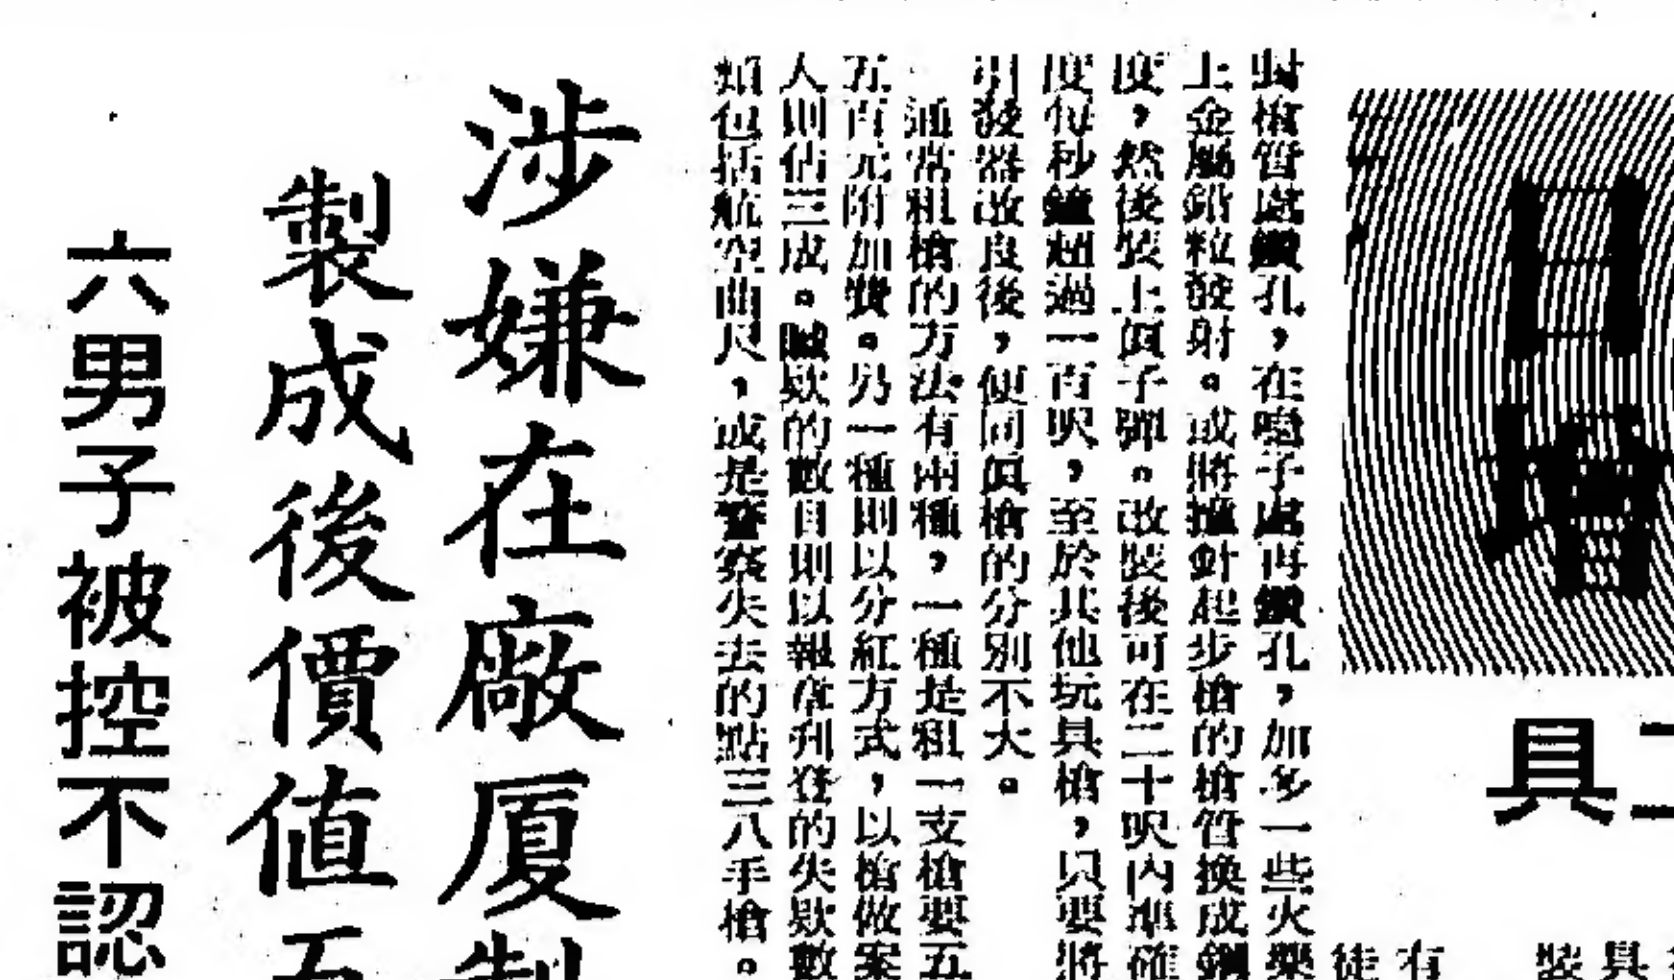 日增
具
有
徒
射槍管處鑽孔，在咀子處再鑽孔，加多一些火藥
上金屬鉛粒發射。或將撞針起步槍的槍管換成鋼
度，然後裝上眞子彈。改裝後可在二十呎內準確
度每秒鐘超過一百呎，至於其他玩具槍，只要將
引發器改良後，便同眞槍的分別不大。
通常租槍的方法有兩種，一種是租一支槍要五
五百元附加費。另一種則以分紅方式，以槍做案
人則佔三成。贓欵的數目則以報章刋登的失欵數
類包括航空曲尺，或是警察失去的點三八手槍。
涉嫌在廠厦製
製成後價值
六男子被控不認